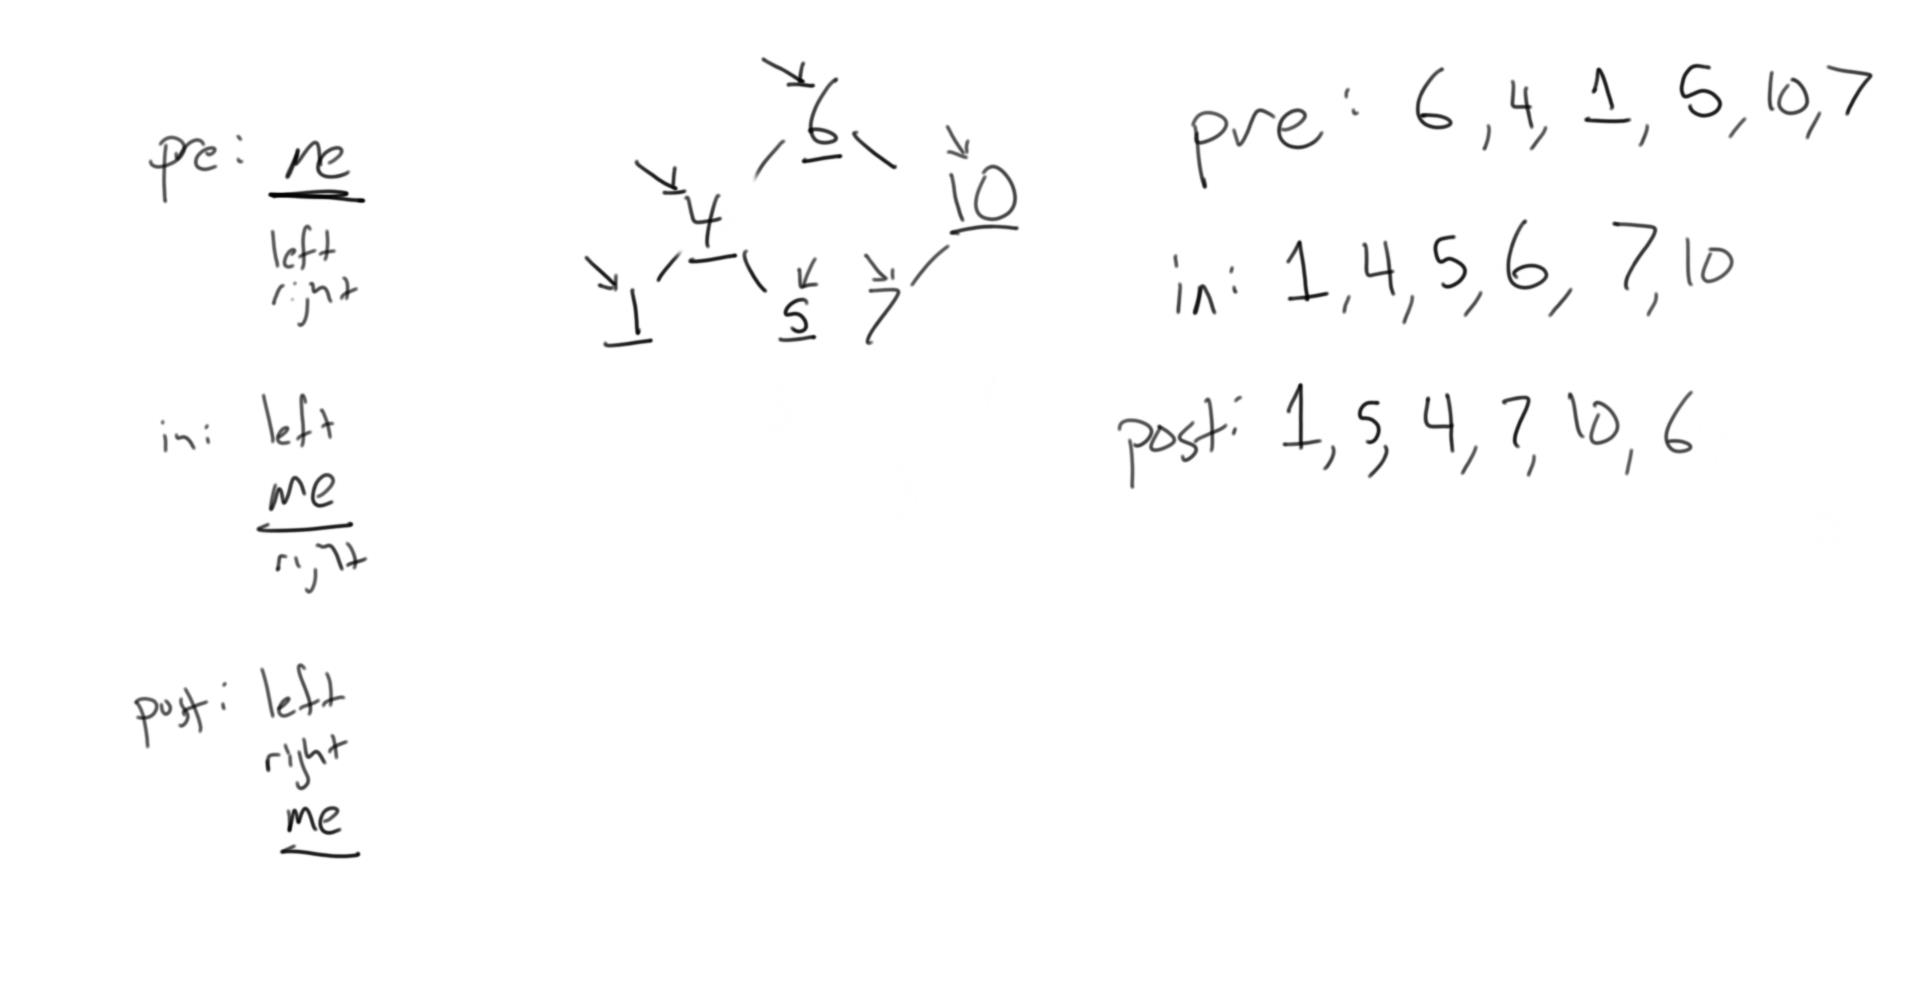 pre: me
left
right
in: left
me
right
post: left
right
me
6
4 10
1 5 7
pre: 6, 4, 1, 5, 10, 7
in: 1, 4, 5, 6, 7, 10
post: 1, 5, 4, 7, 10, 6